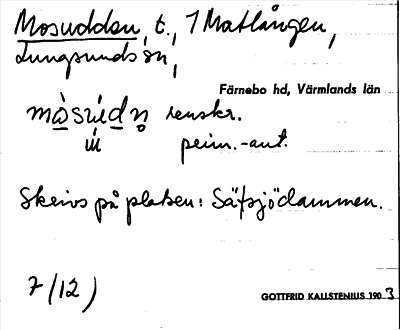 Mosudden, t., 1 Matlången,
Lungsunds sn,
Färnebo hd, Värmlands län
renskr.
peim.-ant.
Skrivs på platsen: Säfsjödammen.
7/12)
GOTTFRID KALLSTENIUS 1903